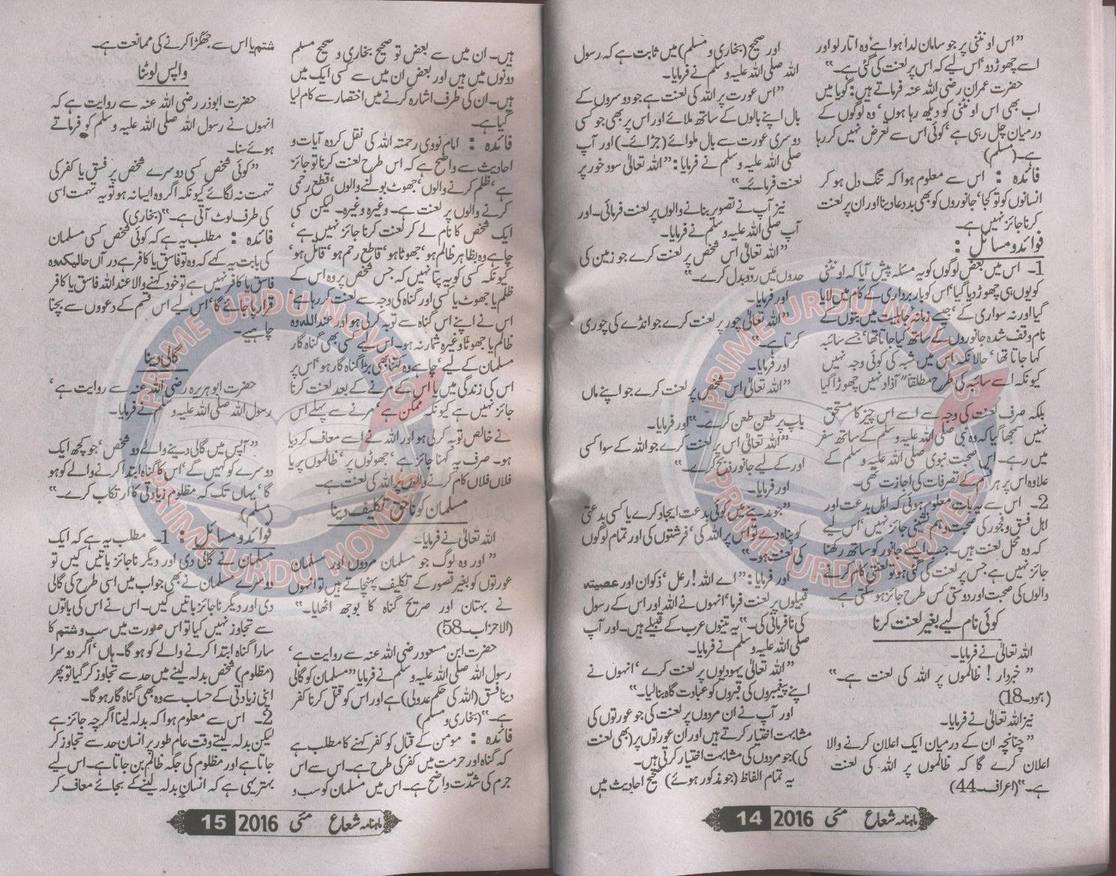 ”اس اونٹنی پر جو سامان لدا ہوا ہے وہ اتار لو اور
اسے چھوڑ دو‘ اس لیے کہ اس پر لعنت کی گئی ہے۔“
حضرت عمران رضی اللہ عنہ فرماتے ہیں: گویا میں
اب بھی اس اونٹنی کو دیکھ رہا ہوں‘ وہ لوگوں کے
درمیان چل رہی ہے‘ کوئی اس سے تعرض نہیں کر رہا
ہے۔ (مسلم)
فائدہ : اس سے معلوم ہوا کہ تنگ دل ہو کر
انسانوں کو تو کجا‘ جانوروں کو بھی بددعا دینا اور ان پر لعنت
کرنا جائز نہیں ہے۔
فوائد و مسائل :
1۔ اس میں بعض لوگوں کو یہ مسئلہ پیش آیا کہ اونٹنی
کو یوں ہی چھوڑ دیا گیا‘ اس کو بار برداری کے کام میں لایا
گیا اور نہ سواری کے‘ جیسے زمانہ جاہلیت میں بتوں کے
نام وقف شدہ جانوروں کے ساتھ کیا جاتا تھا‘ جسے سائبہ
کہا جاتا تھا‘ حالانکہ اس میں شبہ کی کوئی وجہ نہیں
کیونکہ اسے سائبہ کی طرح مطلقاً“ آزاد نہیں چھوڑا گیا
بلکہ صرف لعنت کی وجہ سے اسے اس چیز کا مستحق
نہیں سمجھا گیا کہ وہ نبی صلی اللہ علیہ وسلم کے ساتھ سفر
میں رہے۔ اس صحبت نبوی صلی اللہ علیہ وسلم کے
علاوہ اس پر ہر قسم کے تصرفات کی اجازت تھی۔
2۔ اس سے یہ بات معلوم ہوئی کہ اہل بدعت اور
اہل فسق و فجور کی صحبت اختیار کرنی جائز نہیں‘ اس لیے
کہ وہ محل لعنت ہیں۔ جب ایسے جانور کو ساتھ رکھنا
جائز نہیں ہے‘ جس پر لعنت کی گئی ہو تو لعنت والے کام کرنے
والوں کی صحبت اور دوستی کس طرح جائز ہو سکتی ہے۔
کوئی نام لیے بغیر لعنت کرنا
اللہ تعالیٰ نے فرمایا۔
”خبردار! ظالموں پر اللہ کی لعنت ہے۔“
(ہود۔18)
نیز اللہ تعالیٰ نے فرمایا۔
”چنانچہ ان کے درمیان ایک اعلان کرنے والا
اعلان کرے گا کہ ظالموں پر اللہ کی لعنت
ہے۔“ (اعراف۔44)
اور صحیح (بخاری و مسلم) میں ثابت ہے کہ رسول
اللہ صلی اللہ علیہ وسلم نے فرمایا۔
”اس عورت پر اللہ کی لعنت ہے جو دوسروں کے
بال اپنے بالوں کے ساتھ ملائے اور اس پر بھی جو کسی
دوسری عورت سے بال ملوائے (جڑائے)۔ اور آپ
صلی اللہ علیہ وسلم نے فرمایا: ”اللہ تعالیٰ سود خور پر
لعنت فرمائے۔“
نیز آپ نے تصویر بنانے والوں پر لعنت فرمائی۔ اور
آپ صلی اللہ علیہ وسلم نے فرمایا۔
”اللہ تعالیٰ اس شخص پر لعنت کرے جو زمین کی
حدوں میں ردوبدل کرے۔“
اور فرمایا۔
”اللہ تعالیٰ چور پر لعنت کرے جو انڈے کی چوری
کرتا ہے۔“
اور فرمایا۔
”اللہ تعالیٰ اس شخص پر لعنت کرے جو اپنے ماں
باپ پر لعن طعن کرے۔“ اور فرمایا۔
”اللہ تعالیٰ اس پر لعنت کرے جو اللہ کے سوا کسی
اور کے لیے جانور ذبح کرے۔“
اور فرمایا۔
”جو مدینے میں کوئی بدعت ایجاد کرے یا کسی بدعتی
کو پناہ دے تو اس پر اللہ کی‘ فرشتوں کی اور تمام لوگوں
کی لعنت ہو۔“
اور فرمایا: ”اے اللہ! رعل‘ ذکوان اور عصیتہ
قبیلوں پر لعنت فرما‘ انہوں نے اللہ اور اس کے رسول
کی نافرمانی کی۔“ یہ تینوں عرب کے قبیلے ہیں۔ اور آپ
صلی اللہ علیہ وسلم نے فرمایا۔
”اللہ تعالیٰ یہودیوں پر لعنت کرے‘ انہوں نے
اپنے پیغمبروں کی قبروں کو عبادت گاہ بنا لیا۔“
اور آپ نے ان مردوں پر لعنت کی جو عورتوں کی
مشابہت اختیار کرتے ہیں اور ان عورتوں پر (بھی لعنت
کی) جو مردوں کی مشابہت اختیار کرتی ہیں۔
یہ تمام الفاظ (جو مذکور ہوئے) صحیح احادیث میں
ماہنامہ شعاع مئی 2016 14
ہیں۔ ان میں سے بعض تو صحیح بخاری و صحیح مسلم
دونوں میں ہیں اور بعض ان میں سے کسی ایک میں
ہیں۔ ان کی طرف اشارہ کرنے میں اختصار سے کام لیا
گیا ہے۔
فائدہ : امام نووی رحمتہ اللہ کی نقل کردہ آیات و
احادیث سے واضح ہے کہ اس طرح لعنت کرنا تو جائز
ہے‘ ظلم کرنے والوں‘ جھوٹ بولنے والوں‘ قطع رحمی
کرنے والوں پر لعنت ہے۔ وغیرہ وغیرہ۔ لیکن کسی
ایک شخص کا نام لے کر لعنت کرنا جائز نہیں ہے‘
چاہے وہ بظاہر ظالم ہو‘ جھوٹا ہو‘ قاطع رحم ہو‘ قاتل ہو‘
کیونکہ کسی کو یہ پتا نہیں کہ جس شخص پر وہ اس کے
ظلم یا جھوٹ یا کسی اور گناہ کی وجہ سے لعنت کر رہا ہے‘
اس نے اپنے اس گناہ سے توبہ کر لی ہو اور عنداللہ وہ
ظالم یا جھوٹا وغیرہ شمار نہ ہو۔ اس لیے کسی بھی گناہ گار
مسلمان کے لیے‘ چاہے وہ کتنا بھی بڑا گناہ گار ہو‘ اس پر
اس کی زندگی میں یا اس کے مرنے کے بعد لعنت کرنا
جائز نہیں ہے کیونکہ ممکن ہے مرنے سے پہلے اس
نے خالص توبہ کر لی ہو اور اللہ نے اسے معاف کر دیا
ہو۔ صرف یہ کہنا جائز ہے‘ جھوٹوں پر‘ ظالموں پر یا
فلاں فلاں کام کرنے والوں پر اللہ کی لعنت ہے۔
مسلمان کو ناحق تکلیف دینا
اللہ تعالیٰ نے فرمایا۔
”اور وہ لوگ جو مسلمان مردوں اور مسلمان
عورتوں کو بغیر قصور کے تکلیف پہنچاتے ہیں تو انہوں
نے بہتان اور صریح گناہ کا بوجھ اٹھایا۔“
(الاحزاب۔58)
حضرت ابن مسعود رضی اللہ عنہ سے روایت ہے‘
رسول اللہ صلی اللہ علیہ وسلم نے فرمایا ”مسلمان کو گالی
دینا فسق (اللہ کی حکم عدولی) ہے اور اس کو قتل کرنا کفر
ہے۔“ (بخاری و مسلم)
فائدہ : مومن کے قتال کو کفر کہنے کا مطلب ہے
کہ گناہ اور حرمت میں کفر کی طرح ہے۔ اس سے اس
جرم کی شدت واضح ہے۔ اس میں مسلمان کو سب و
شتم یا اس سے جھگڑا کرنے کی ممانعت ہے۔
واپس لوٹنا
حضرت ابوذر رضی اللہ عنہ سے روایت ہے کہ
انہوں نے رسول اللہ صلی اللہ علیہ وسلم کو فرماتے
ہوئے سنا۔
”کوئی شخص کسی دوسرے شخص پر فسق یا کفر کی
تہمت نہ لگائے کیونکہ اگر وہ ایسا نہ ہو تو یہ تہمت اسی
کی طرف لوٹ آتی ہے۔“ (بخاری)
فائدہ : مطلب یہ ہے کہ کوئی شخص کسی مسلمان
کی بابت یہ کہے کہ وہ تو فاسق یا کافر ہے در آں حالیکہ وہ
فاسق یا کافر نہیں ہے تو خود کہنے والا عند اللہ فاسق یا کافر
قرار پا جائے گا‘ اس لیے اس قسم کے دعووں سے بچنا
چاہیے۔
گالی دینا
حضرت ابو ہریرہ رضی اللہ عنہ سے روایت ہے‘
رسول اللہ صلی اللہ علیہ وسلم نے فرمایا۔
”آپس میں گالی دینے والے دو شخص‘ جو کچھ ایک
دوسرے کو کہیں گے‘ اس کا گناہ ابتدا کرنے والے کو ہو
گا‘ یہاں تک کہ مظلوم زیادتی کا ارتکاب کرے۔“
(مسلم)
فوائد و مسائل : 1۔ مطلب یہ ہے کہ ایک
مسلمان نے گالی دی اور دیگر ناجائز باتیں کیں تو
دوسرے مسلمان نے بھی جواب میں اسی طرح کی گالی
دی اور دیگر ناجائز باتیں کیں۔ اس نے اس کی باتوں
سے تجاوز نہیں کیا تو اس صورت میں سب و شتم کا
سارا گناہ ابتدا کرنے والے کو ہو گا۔ ہاں‘ اگر دوسرا
(مظلوم) شخص بدلہ لینے میں حد سے تجاوز کر گیا تو پھر
اپنی زیادتی کے حساب سے وہ بھی گناہ گار ہو گا۔
2۔ اس سے معلوم ہوا کہ بدلہ لینا اگرچہ جائز ہے
لیکن بدلہ لیتے وقت عام طور پر انسان حد سے تجاوز کر
جاتا ہے اور مظلوم کی جگہ ظالم بن جاتا ہے۔ اس لیے
بہتر یہی ہے کہ انسان بدلہ لینے کے بجائے معاف کر
ماہنامہ شعاع مئی 2016 15
PRIME URDU NOVELS
PRIME URDU NOVELS
PRIME URDU NOVELS
PRIME URDU NOVELS